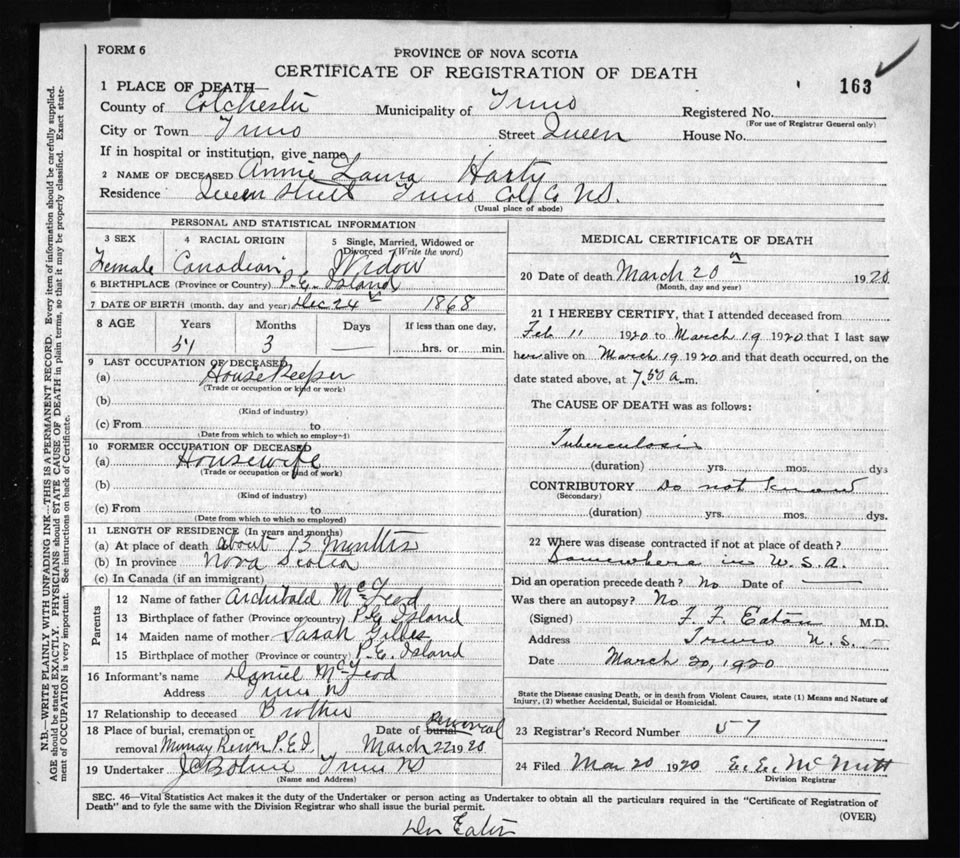 FORM 6
PROVINCE OF NOVA SCOTIA
CERTIFICATE OF REGISTRATION OF DEATH
163
1 PLACE OF DEATH—
County of Colchester Municipality of Truro Registered No.
(For use of Registrar General only)
City or Town Truro Street Queen House No.
If in hospital or institution, give name
2 NAME OF DECEASED Annie Laura Harty
Residence Queen Street Truro Col. Co NS.
(Usual place of abode)
PERSONAL AND STATISTICAL INFORMATION
3 SEX 4 RACIAL ORIGIN 5 Single, Married, Widowed or
Divorced (Write the word)
Female Canadian Widow
6 BIRTHPLACE (Province or Country) P.E. Island
7 DATE OF BIRTH (month, day and year) Dec 24th 1868
8 AGE Years Months Days If less than one day,
51 3 — hrs. or min.
9 LAST OCCUPATION OF DECEASED
(a) House Keeper
(Trade or occupation or kind or work)
(b)
(Kind of industry)
(c) From to
(Date from which to which so employed)
10 FORMER OCCUPATION OF DECEASED
(a) Housewife
(Trade or occupation or kind of work)
(b)
(Kind of industry)
(c) From to
(Date from which to which so employed)
11 LENGTH OF RESIDENCE (In years and months)
(a) At place of death about 13 months
(b) In province Nova Scotia
(c) In Canada (if an immigrant)
Parents
12 Name of father Archibald McLeod
13 Birthplace of father (Province or country) P.E. Island
14 Maiden name of mother Sarah
15 Birthplace of mother (Province or country) P.E. Island
16 Informant's name Daniel McLeod
Address Truro NS
17 Relationship to deceased Brother
18 Place of burial, cremation or Date of burial removal
removal Murray River P.E.I. March 22 1920
19 Undertaker Truro NS
(Name and Address)
MEDICAL CERTIFICATE OF DEATH
20 Date of death March 20th 1920
(Month, day and year)
21 I HEREBY CERTIFY, that I attended deceased from
Feb 11 1920 to March 19 1920 that I last saw
her alive on March 19 1920 and that death occurred, on the
date stated above, at 7.50 a.m.
The CAUSE OF DEATH was as follows:
Tuberculosis
(duration) yrs. mos. dys
CONTRIBUTORY Do not know
(Secondary)
(duration) yrs. mos. dys.
22 Where was disease contracted if not at place of death?
Somewhere in U.S.A.
Did an operation precede death? No Date of —
Was there an autopsy? No
(Signed) F. F. Eaton M.D.
Address Truro N.S.
Date March 20, 1920
State the Disease causing Death, or in death from Violent Causes, state (1) Means and Nature of
Injury, (2) whether Accidental, Suicidal or Homicidal.
23 Registrar's Record Number 57
24 Filed Mar 20 1920 E. E. McNutt
Division Registrar
SEC. 46—Vital Statistics Act makes it the duty of the Undertaker or person acting as Undertaker to obtain all the particulars required in the "Certificate of Registration of
Death" and to fyle the same with the Division Registrar who shall issue the burial permit.
(OVER)
Dr Eaton
N.B.—WRITE PLAINLY WITH UNFADING INK—THIS IS A PERMANENT RECORD. Every item of information should be carefully supplied.
AGE should be stated EXACTLY. PHYSICIANS should STATE CAUSE OF DEATH in plain terms, so that it may be properly classified. Exact state-
ment of OCCUPATION is very important. See instructions on back of Certificate.